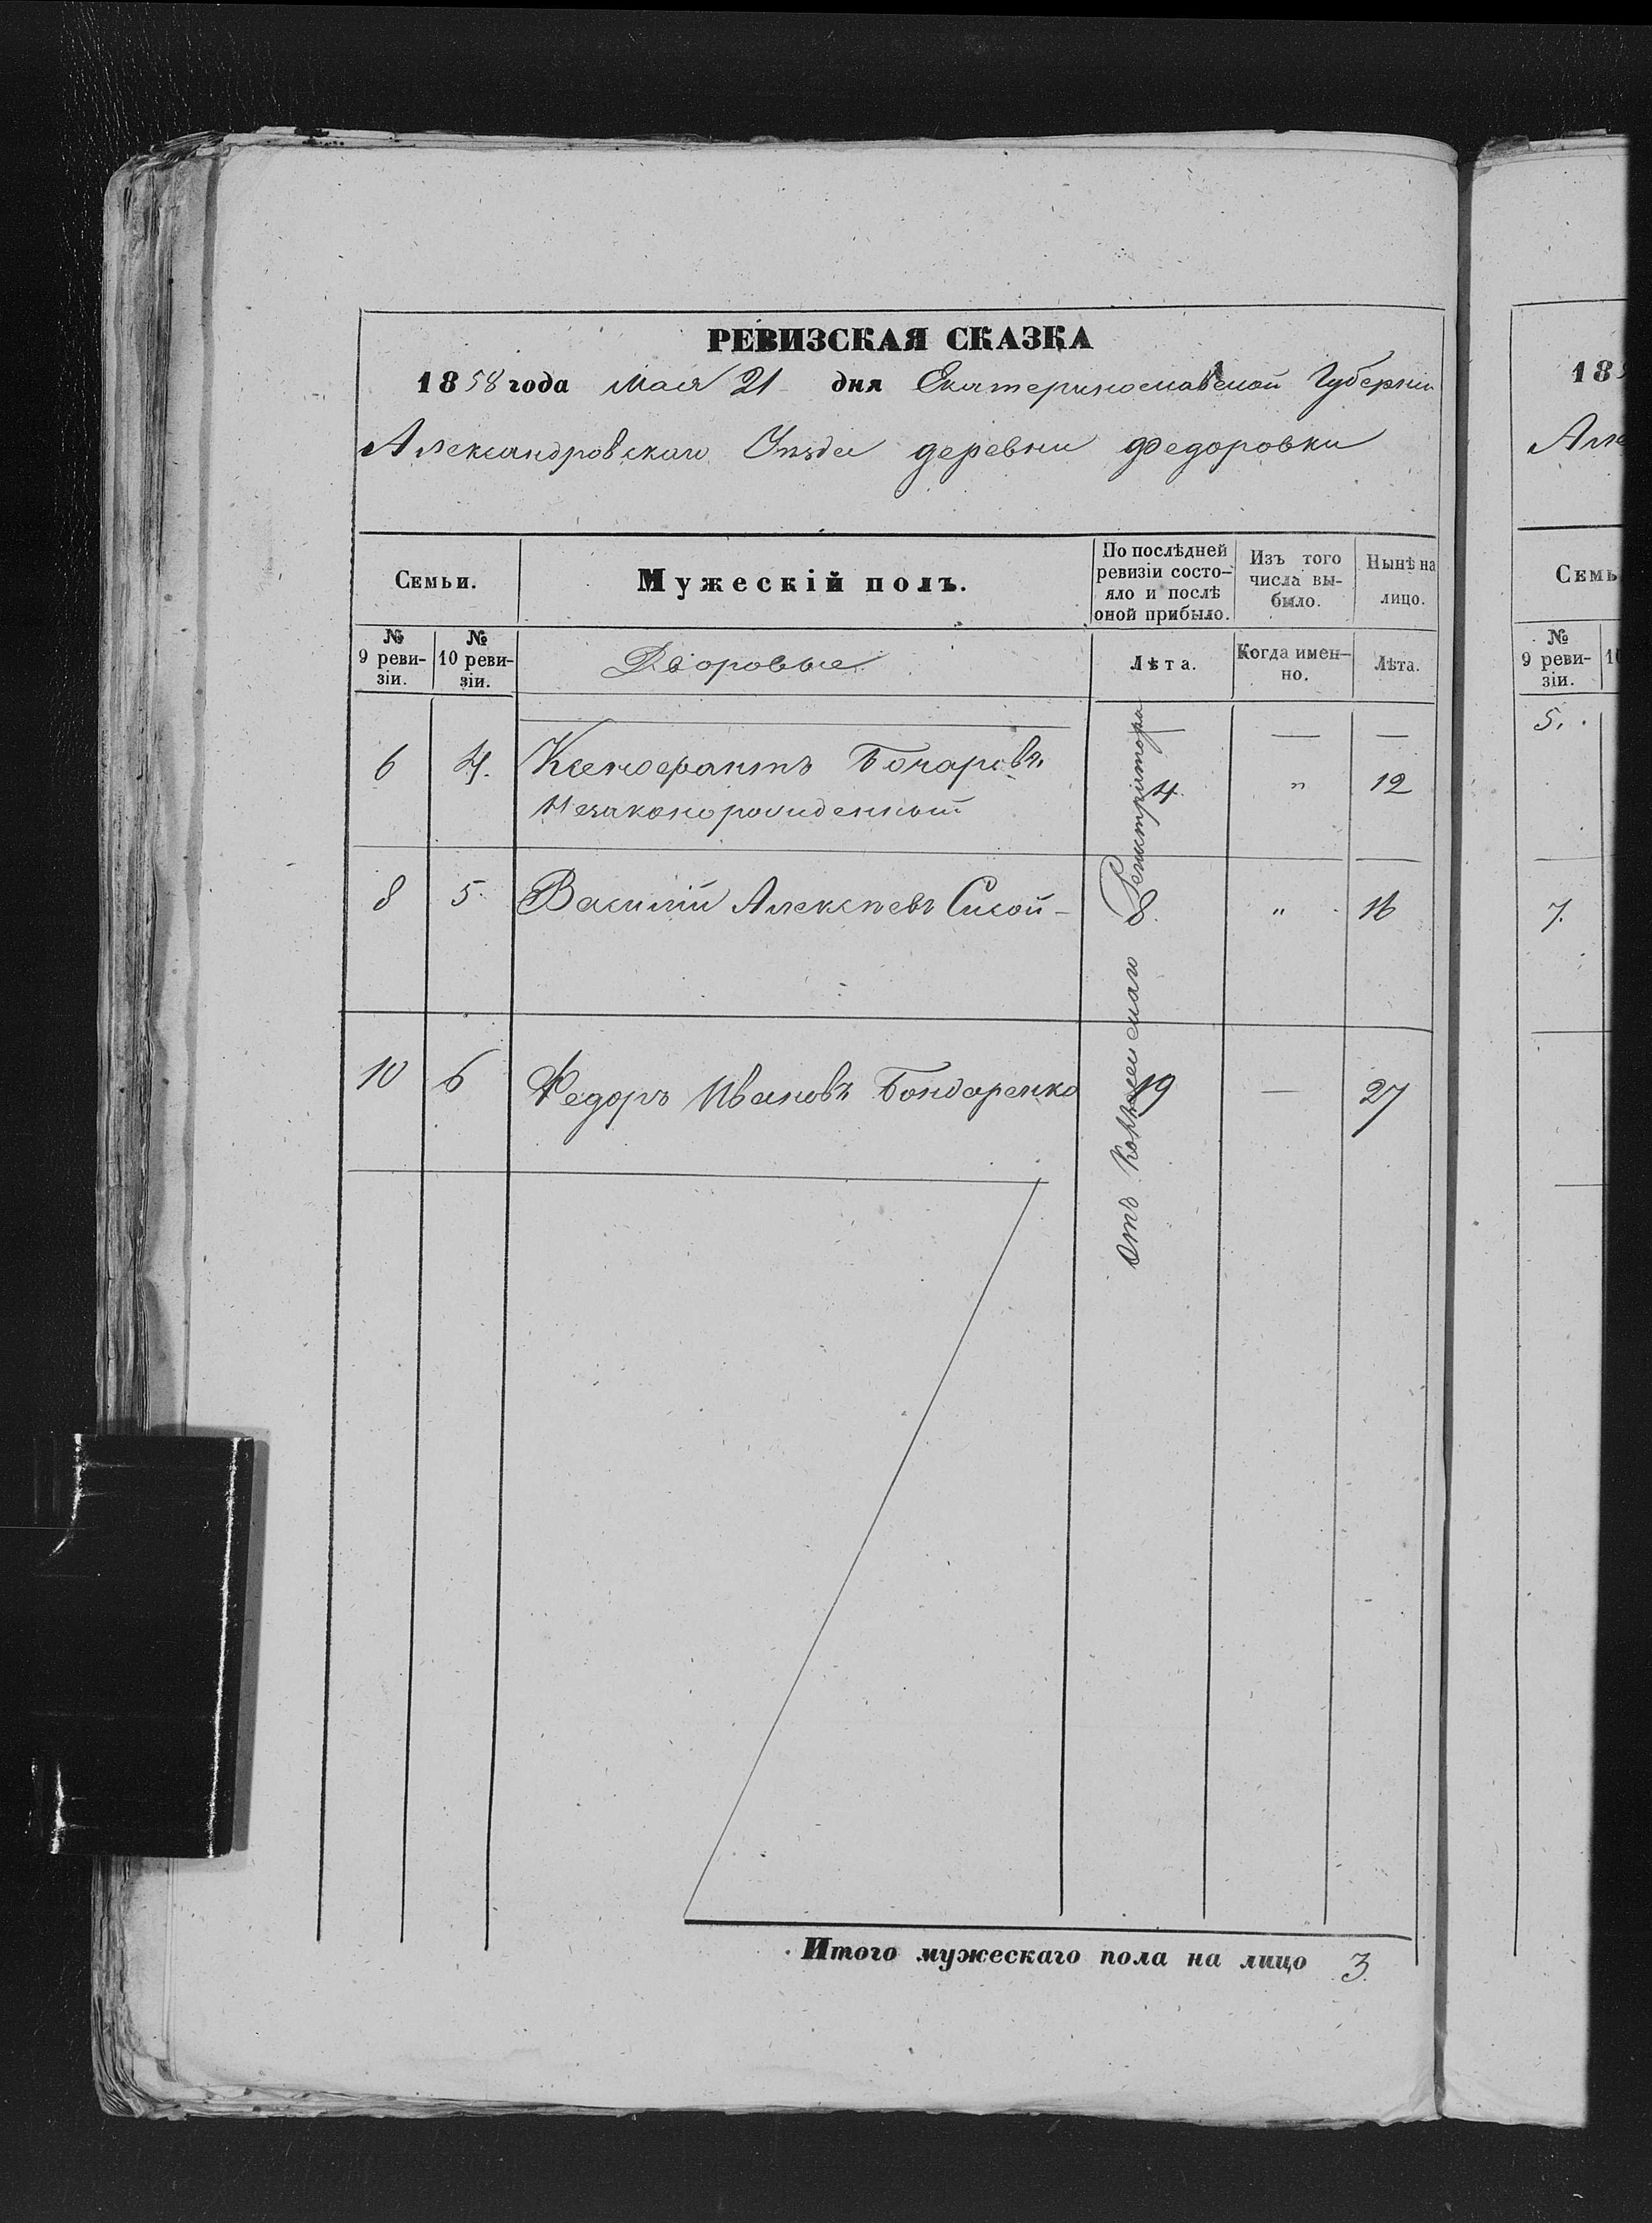 РЕВИЗСКАЯ СКАЗКА
1858 года Мая 21 дня Екатеринославской Губерніи
Александровскаго Уѣзда деревни Федоровки
Семьи.
Мужескій полъ.
По послѣдней ревизіи состо-
яло и послѣ оной прибыло.
Изъ того числа вы-
было.
Нынѣ на лицо.
№ 9 реви-
зіи.
№ 10 реви-
зіи.
Дворовые
Лѣта.
Когда имен-
но.
Лѣта.
6 4. Ксенофантъ Бочаровъ
Незаконорожденный 4 " 12
8 5. Василій Алексѣевъ Сисой- 8 " 16
10 6 Федоръ Ивановъ Бондаренко 19 — 27
Отъ Регистратора
Итого мужескаго пола на лицо 3.
185
Але
Семь
№ 9 реви-
зіи.
10
5.
7.